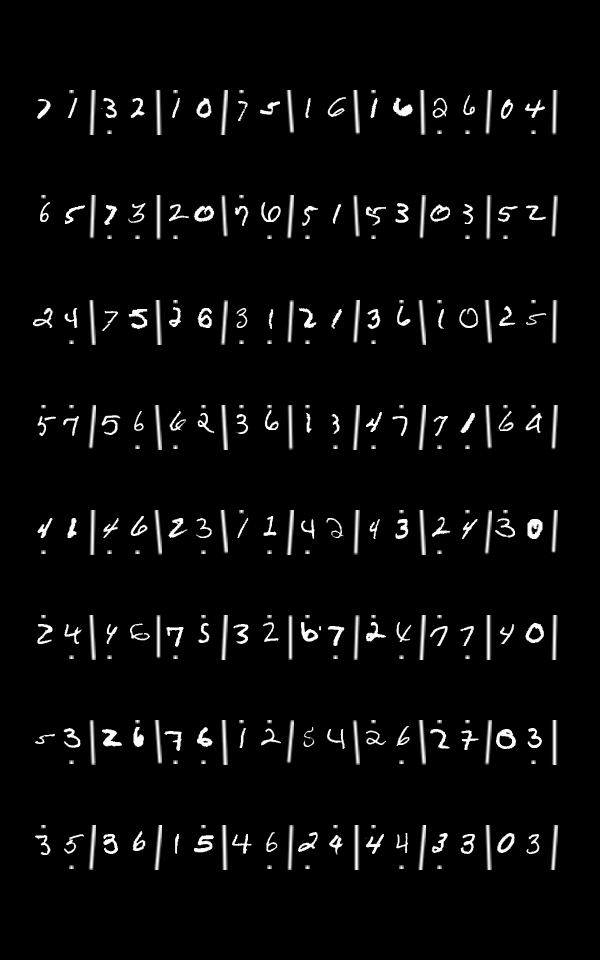 7 1 | 3 2 | 1 0 | 7 5 | 1 6 | 1 6 | 2 6 | 0 4 |
6 5 | 7 3 | 2 0 | 7 6 | 5 1 | 5 3 | 0 3 | 5 2 |
2 4 | 7 5 | 2 6 | 3 1 | 2 1 | 3 6 | 1 0 | 2 5 |
5 7 | 5 6 | 6 2 | 3 6 | 1 3 | 4 7 | 7 1 | 6 4 |
4 1 | 4 6 | 2 3 | 1 1 | 4 2 | 4 3 | 2 4 | 3 0 |
2 4 | 4 6 | 7 5 | 3 2 | 6 7 | 2 4 | 7 7 | 4 0 |
5 3 | 2 6 | 7 6 | 1 2 | 5 4 | 2 6 | 2 7 | 0 3 |
3 5 | 3 6 | 1 5 | 4 6 | 2 4 | 4 4 | 3 3 | 0 3 |